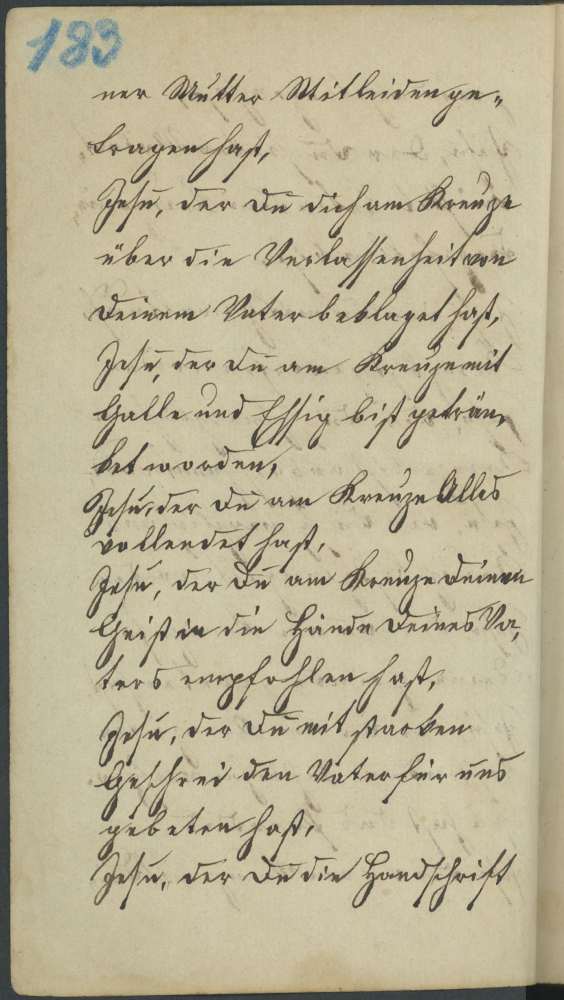 183
ner Mutter Mitleiden ge„
tragen hast,
Jesu, der Du dich am Kreuze
über die Verlassenheit von
Deinem Vater beklaget hast,
Jesu, der Du am Kreuze mit
Galle und Essig bist geträn„
ket worden,
Jesu, der Du am Kreuze Alles
vollendet hast,
Jesu, der Du am Kreuze Deinen
Geist in die Hände Deines Va„
ters empfohlen hast,
Jesu, der Du mit starken
Geschrei den Vater für uns
gebeten hast,
Jesu, der Du die Handschrift